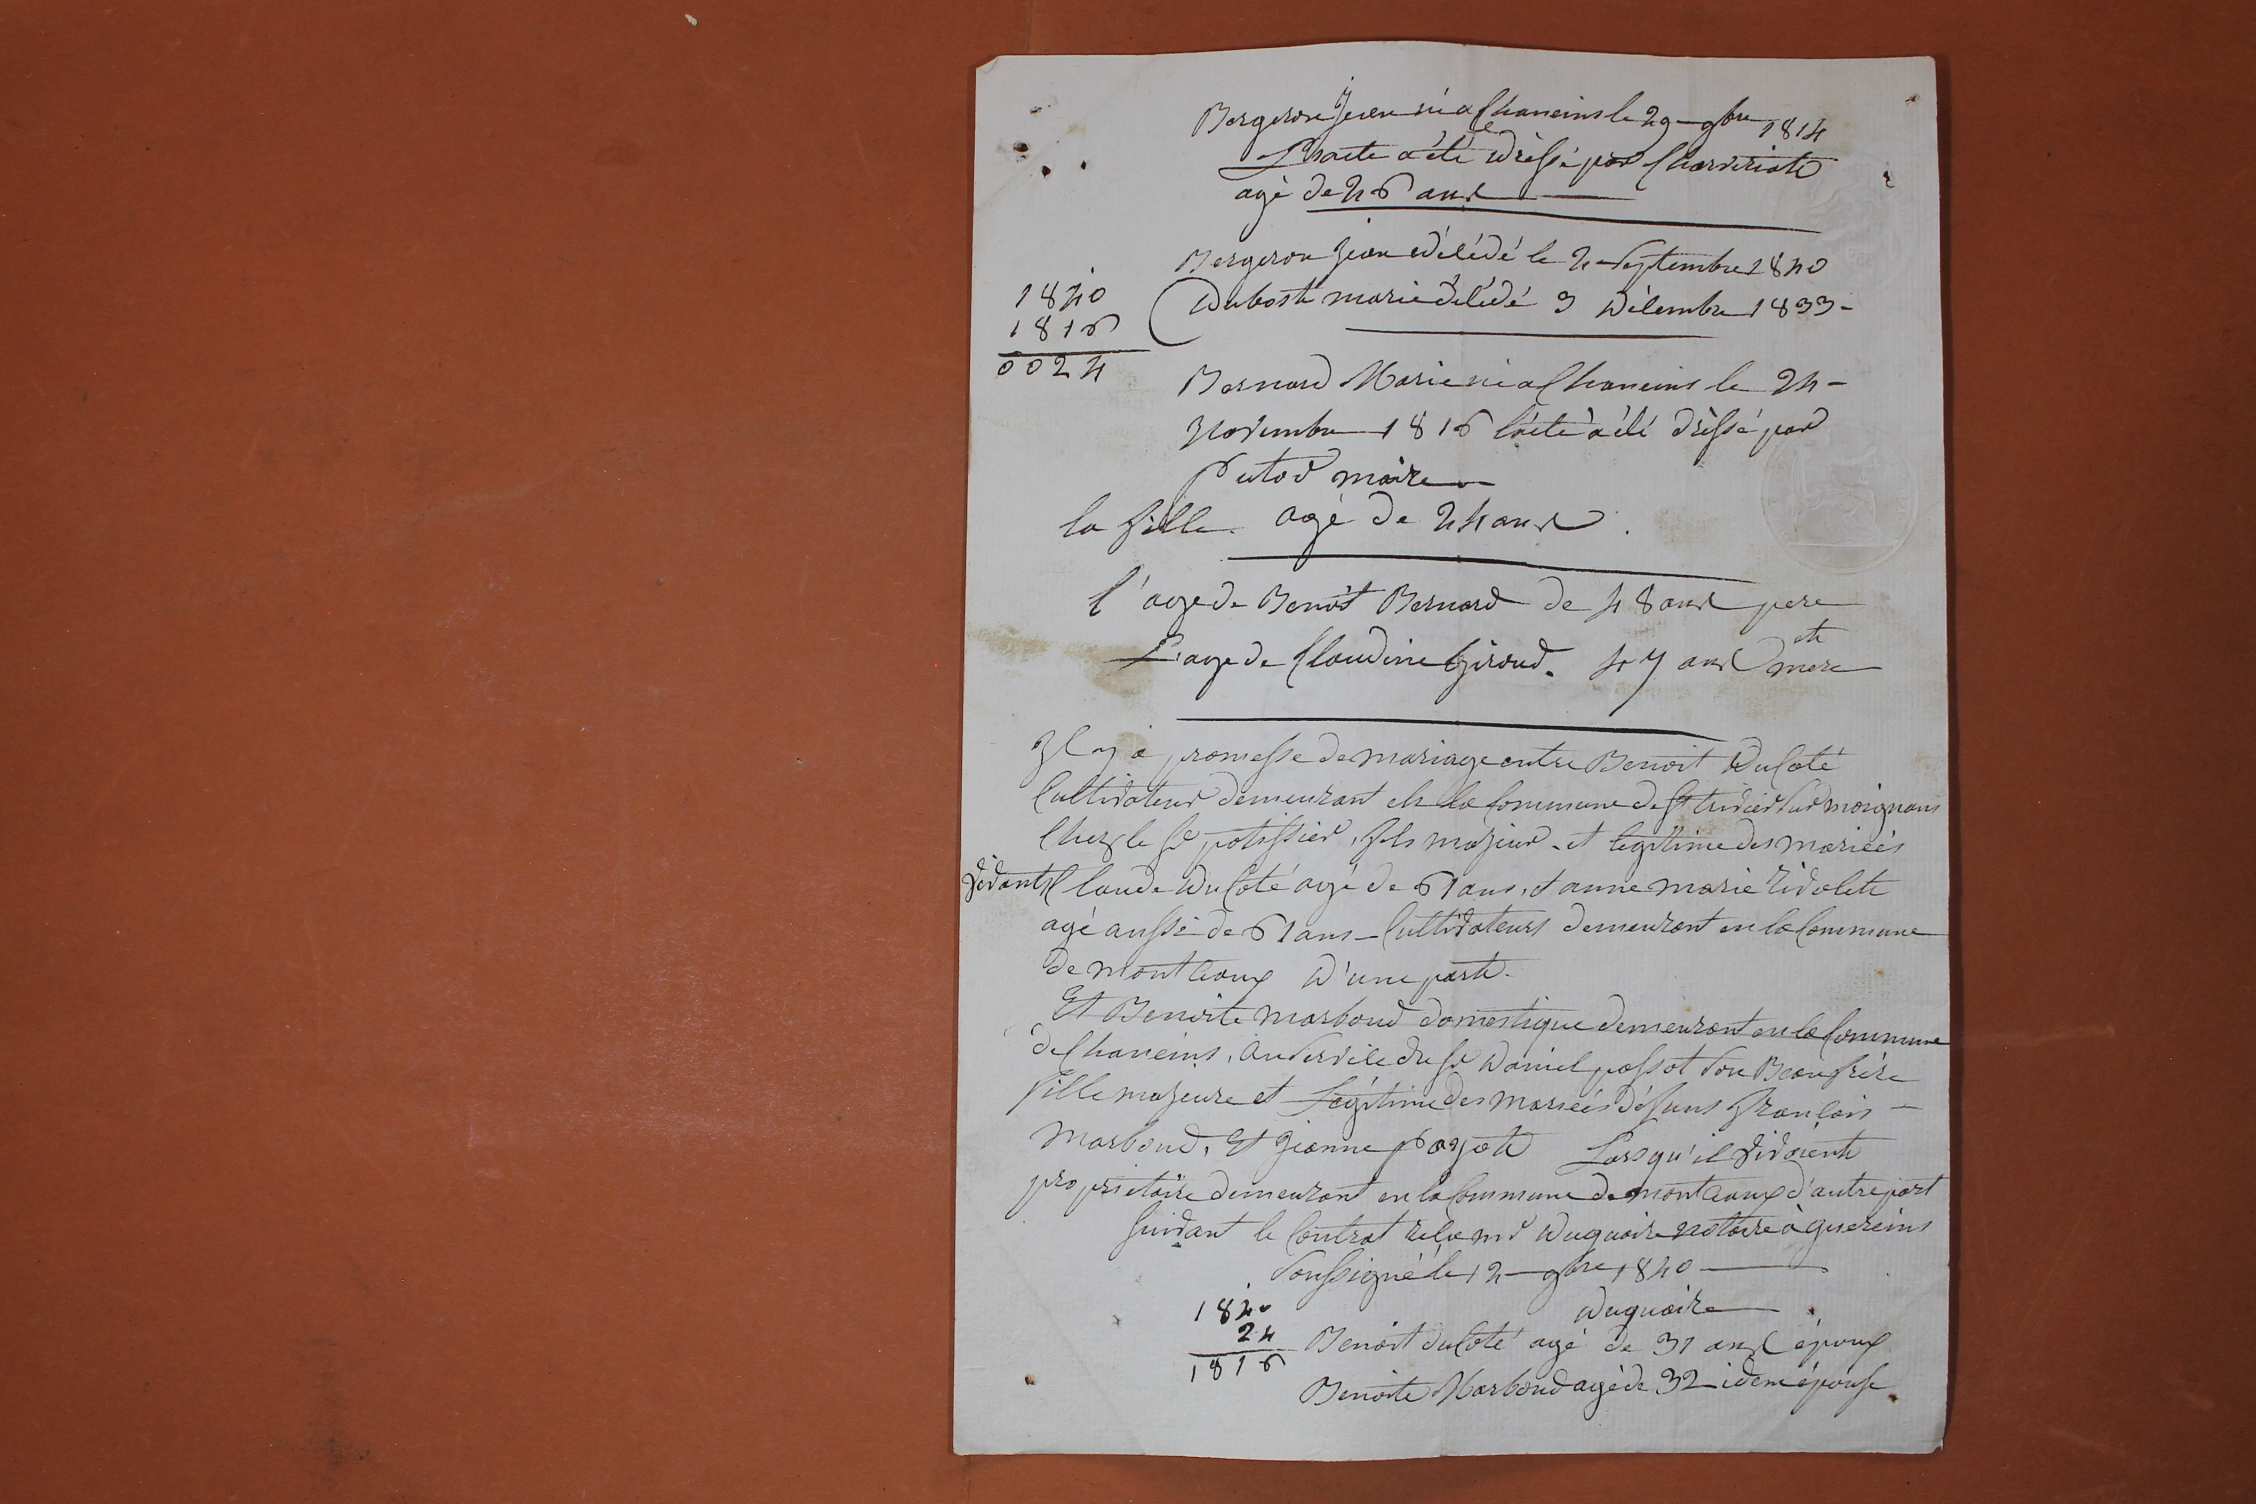 Bergeron Jean né a Chaneins le 29 9bre 1814
L'acte a été dressé par Charveriate
agé de 26 ans
Bergeron Jean décédé le 2 septembre 1840
Duboste marie décédé 3 décembre 1833
1840
1816
0024
Bernard Marie né a Chaneins le 24
novembre 1816 l'acte a été dressé par
Putod maire
la fille agé de 24 ans.
l'age de Benoit Bernard de 48 ans pere
et
L'age de Claudine Giroud. 47 ans mere
Il y a promesse de mariage entre Benoit Ducoté
Cultivateur demeurant en la Commune de St trivier sur moignans
Chez le Sr potissier, fils majeur et legitime des mariés
vivants Claude Ducoté agé de 61 ans, et anne marie
agé aussi de 61 ans Cultivateurs demeurant en la Commune
de montceaux d'une part.
Et Benoite Marboud domestique demeurant en la Commune
de Chaneins, au service du Sr Daniel passot son Beaufrère
fille majeure et Légitime des mariés défuns françois
Marboud, et Jeanne Payote Lorsqu'il vivaient
proprietaire demeurant en la Commune de montceaux d'autre part
suivant le Contrat recu me Duquaire notaire à guereins
soussigné le 12 9bre 1840
Duquaire
1840
24
1816
Benoit ducoté agé de 31 ans époux
Benoite Marboud agé de 32 idem épouse